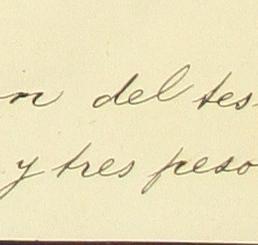 n del tes
y tres peso